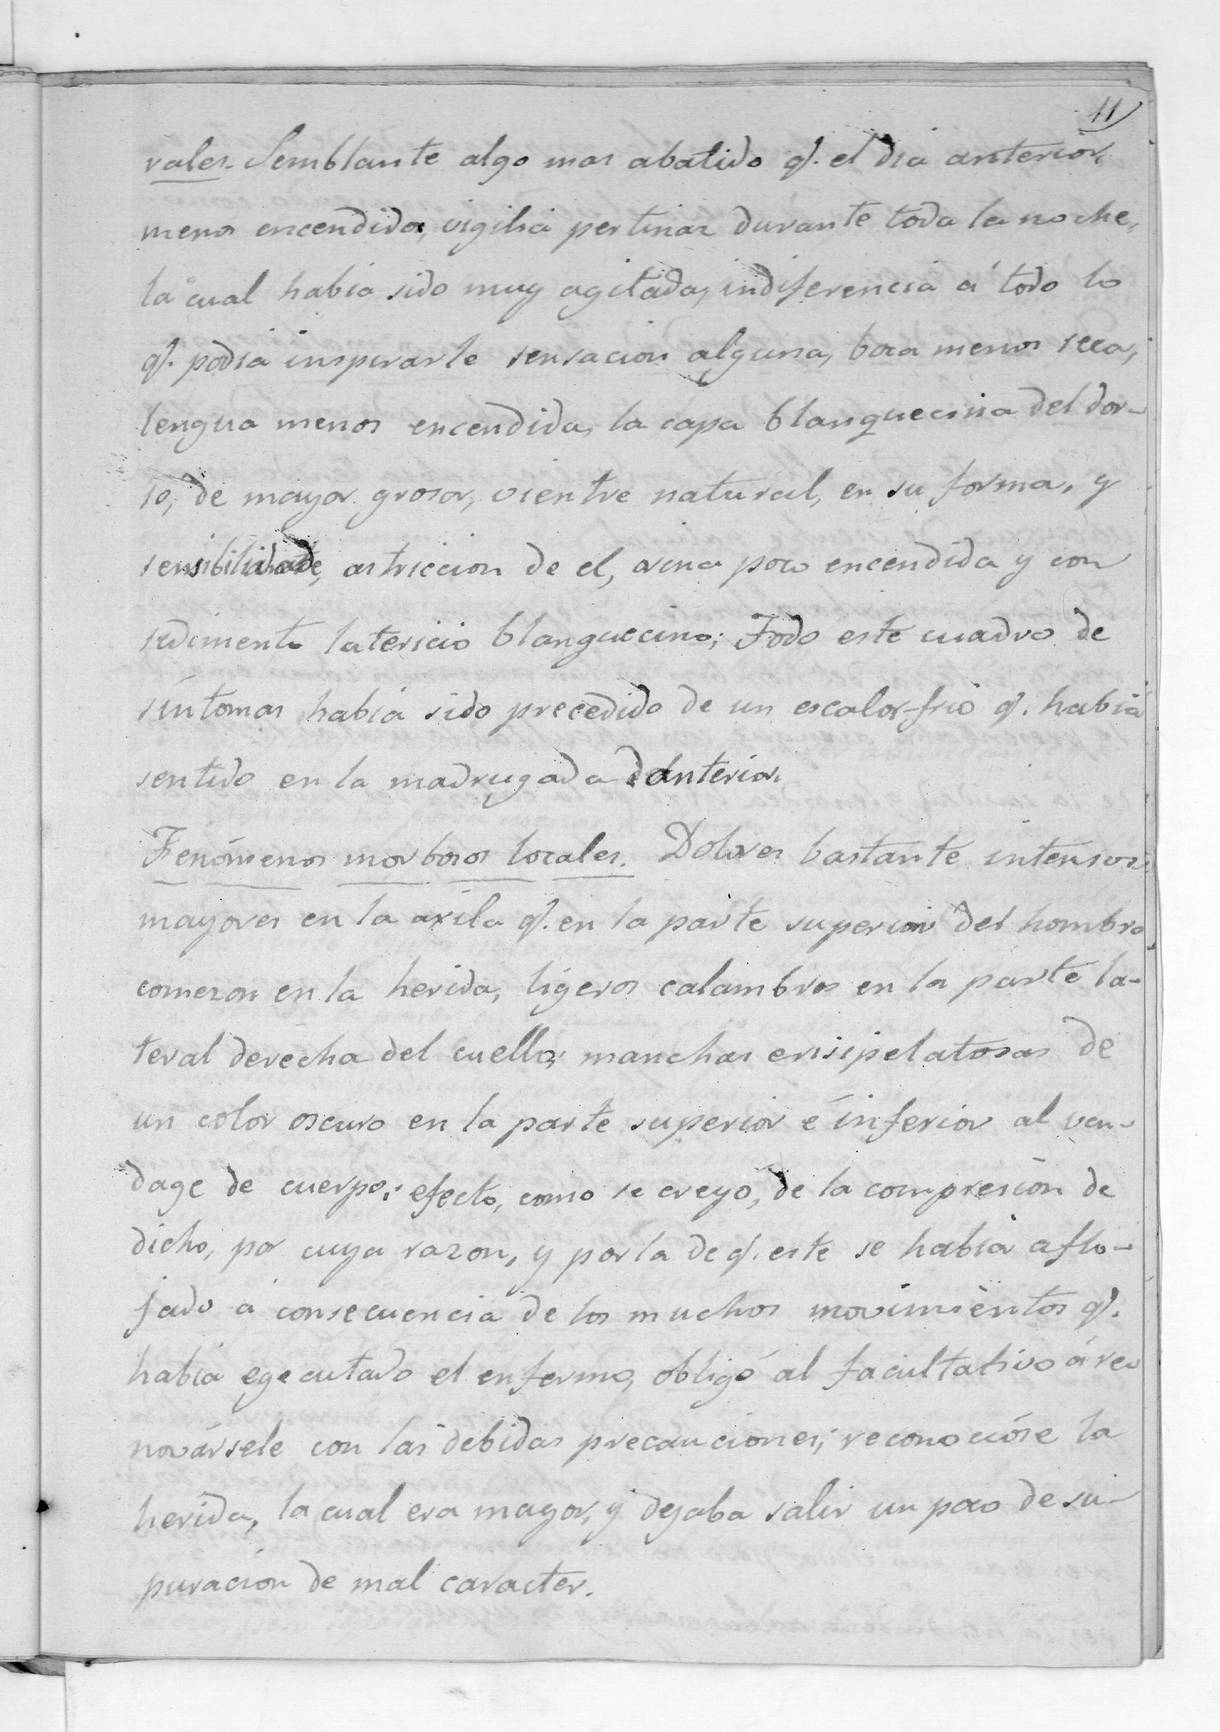 11
rales. Semblante algo mas abatido q.e el dia anterior,
menos encendido, vigilia pertinaz durante toda la noche,
la cual habia sido muy agitada, indiferencia á todo lo
q.e podia inspirarle sensacion alguna, boca menos seca,
lengua menos encendida, la capa blanquecina del dor-
so, de mayor grosor, vientre natural, en su forma, y
sensibilidad, astriccion de el, orina poco encendida y con
sedimento latericio blanquecino; Todo este cuadro de
síntomas habia sido precedido de un escalor-frio q.e habia
sentido en la madrugada anterior.
Fenómenos morbosos locales. Dolores bastante intensos
mayores en la axila q.e en la parte superior del hombro
comezon en la herida, ligeros calambres en la parte la-
teral derecha del cuello, manchas erisipelatosas de
un color oscuro en la parte superior é inferior al ven-
dage de cuerpo: efecto, como se creyó, de la compresion de
dicho, por cuya razon, y por la de q.e este se habia aflo-
jado á consecuencia de los muchos movimientos q.e
habia egecutado el enfermo, obligó al facultativo á re-
novársele con las debidas precauciones; reconocióse la
herida, la cual era mayor, y dejaba salir un poco de su-
puracion de mal caracter.